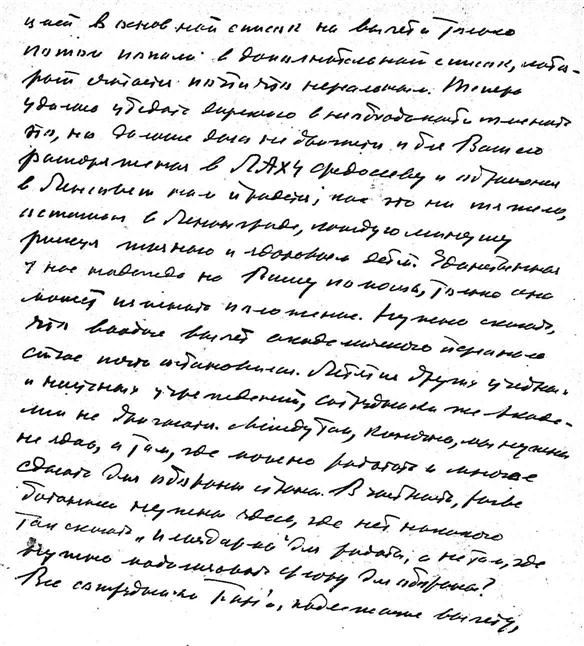 цией в основной список на вылет и только
потом попали в дополнительный список, кото-
рый считаем почти что нереальным. Теперь
удалось убедить дирекцию в необходимости
то, но дальше дело не движется и без Вашего
распоряжения в ЛАХУ Федосееву и обращения
в Ленсовет нам как это ни тяжело,
остаться в Ленинграде, каждую минуту
рискуя жизнью и здоровьем детей. Единственная
у нас надежда на Вашу помощь, только она
может изменить положение. Нужно сказать,
что вообще вылет академического персонала
сейчас почти остановился. Летят другие
и научных учреждений, сотрудники же Акаде-
мии не двигаются. Между тем, конечно, мы нужны
не здесь, а там, где можно работать и многое
сделать для обороны страны. В частности, разве
ботаники нужны здесь, где нет никакого
так сказать „ для работы, а не там, где
нужно мобилизовать флору для обороны?
Все сотрудники БИН'а, подлежащие вылету,